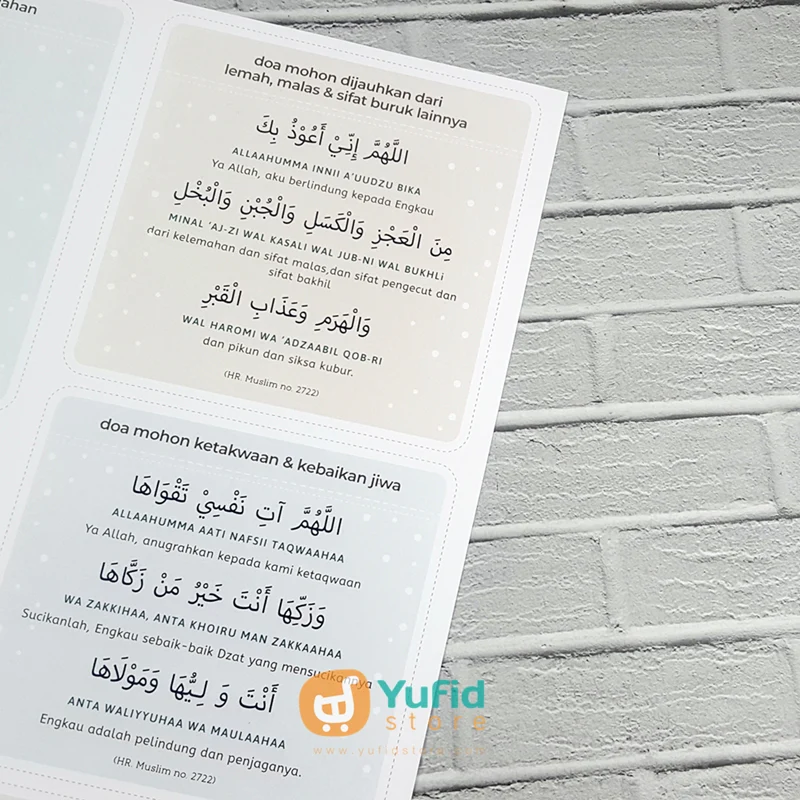 doa mohon dijauhkan dari
lemah, malas & sifat buruk lainnya
اللَّهُمَّ إِنِّيْ أَعُوْذُ بِكَ
ALLAAHUMMA INNII A'UUDZU BIKA
Ya Allah, aku berlindung kepada Engkau
مِنَ الْعَجْزِ وَالْكَسَلِ وَالْجُبْنِ وَالْبُخْلِ
MINAL 'AJ-ZI WAL KASALI WAL JUB-NI WAL BUKHLi
dari kelemahan dan sifat malas,dan sifat pengecut dan
sifat bakhil
وَالْهَرَمِ وَعَذَابِ الْقَبْرِ
WAL HAROMI WA 'ADZAABIL QOB-RI
dan pikun dan siksa kubur.
(HR. Muslim no. 2722)
doa mohon ketakwaan & kebaikan jiwa
اللَّهُمَّ آتِ نَفْسِيْ تَقْوَاهَا
ALLAAHUMMA AATI NAFSII TAQWAAHAA
Ya Allah, anugrahkan kepada kami ketaqwaan
وَزَكِّهَا أَنْتَ خَيْرُ مَنْ زَكَّاهَا
WA ZAKKIHAA, ANTA KHOIRU MAN ZAKKAAHAA
Sucikanlah, Engkau sebaik-baik Dzat yang mensucikannya
أَنْتَ وَ لِيُّهَا وَمَوْلَاهَا
ANTA WALIYYUHAA WA MAULAAHAA
Engkau adalah pelindung dan penjaganya.
(HR. Muslim no. 2722)
Yufid
store
www.yufidstore.com